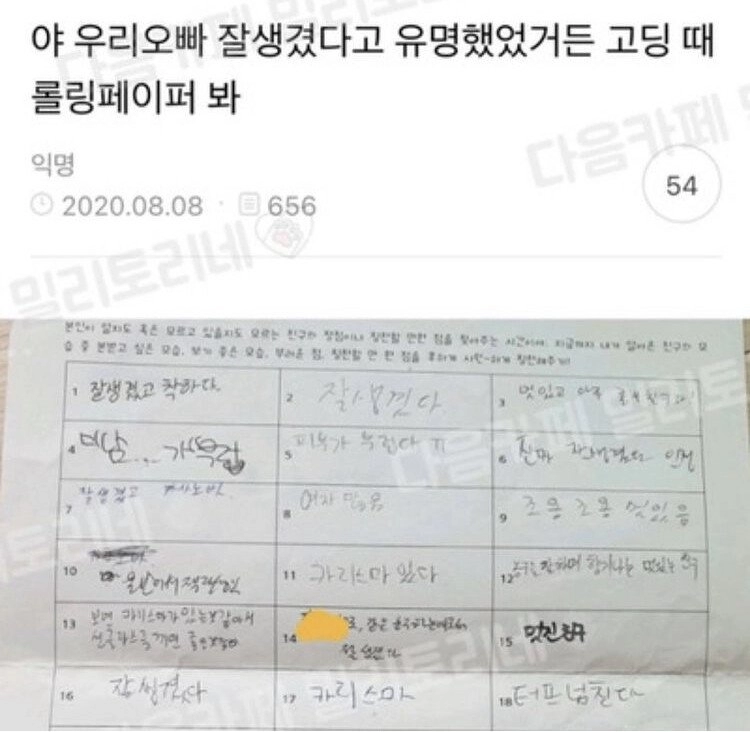 야 우리오빠 잘생겼다고 유명했었거든 고딩 때
롤링페이퍼 봐
익명
2020.08.08 · 656
54
다음카페
밀리토리네
본인이 알지도 혹은 모르고 있을지도 모르는 친구의 장점이나 칭찬할 만한 점을 찾아주는 시간이야. 지금까지 내가 알아온 친구의 모
습 중 본받고 싶은 모습, 보기 좋은 모습, 부러운 점, 칭찬할 만 한 점을 후하게 시원~하게 칭찬해주기!
1 잘생겼고 착하다.
2 잘생겼다
3 멋있고 아주
4 미남...
5 피부가 부럽다 ㅠ
6 진짜 잘생겼다 인정
7 잘생겼고
8 여자 많음
9 조용조용 멋있음
10 우리반에서 제일
11 카리스마 있다
12 멋있는 친구
13 보면 카리스마가 있는것같아서
14 같은
잘생겼다
15 멋진친구
16 잘생겼다
17 카리스마
18 터프넘친다